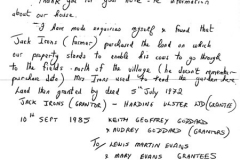 Thank you for your note - re information
about our house.
I have made enquiries myself & found that
Jack Irons (farmer) purchased the land on which
our property stands to enable his cows to go through
to the fields - north of the village (he doesn't remember
purchase date) Mrs Irons used to feed the garden here
Land then granted by deed 5th July 1972
JACK IRONS (GRANTOR) - HARDING ULSTER LTD (GRANTEE)
10TH SEPT 1985 KEITH GEOFFREY GODDARD
& AUDREY GODDARD (GRANTORS)
To/ LEWIS MARTIN EVANS
& MARY EVANS GRANTEES